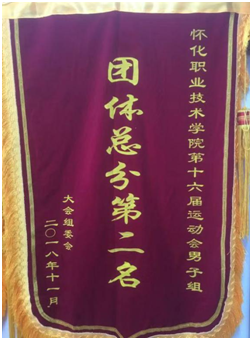 怀化职业技术学院第十六届运动会男子组
团体总分第二名
大会组委会
二〇一八年十一月